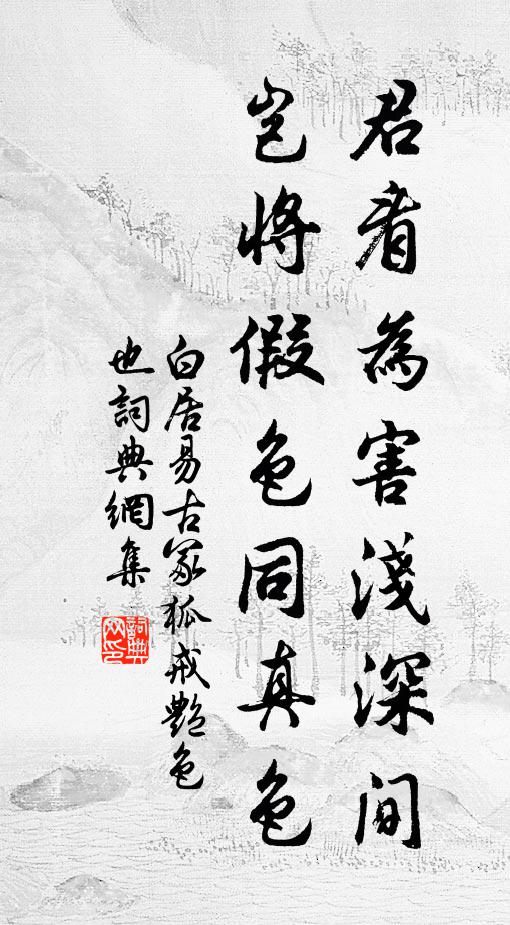 君看為害淺深間
豈將假色同真色
白居易古冢狐戒艷色
也詞典網集
詞典
网印